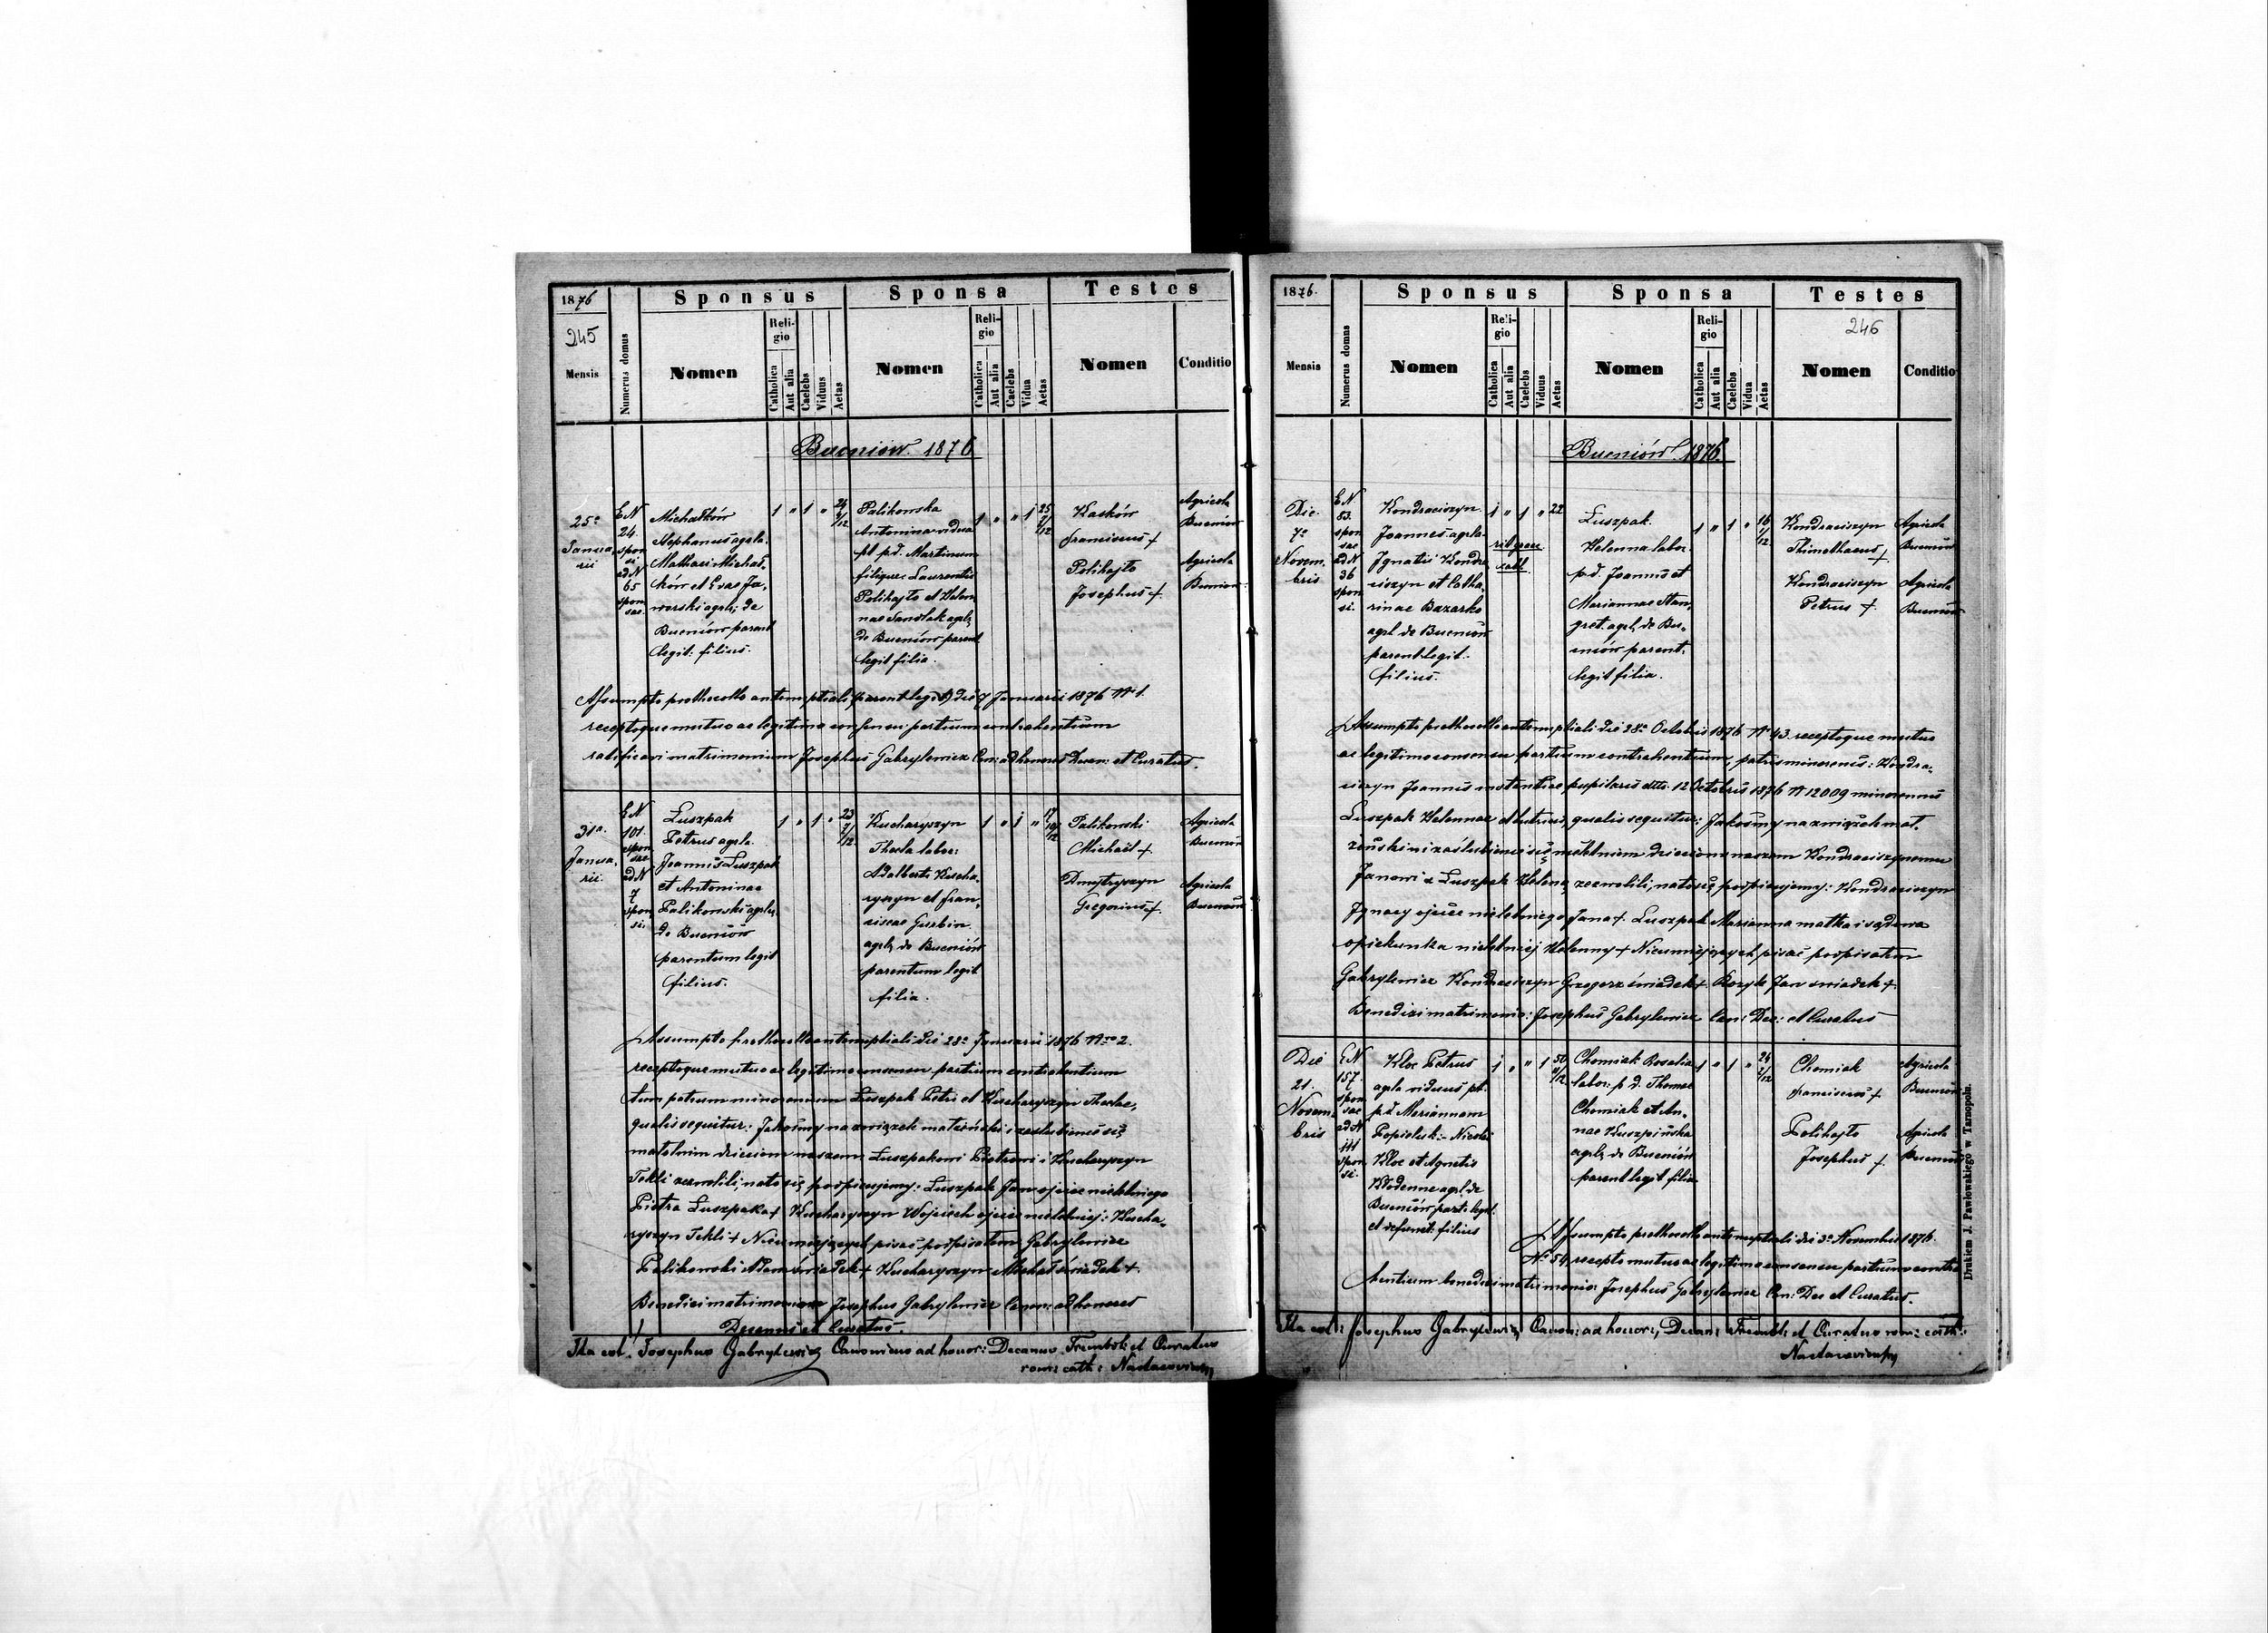 1876
Sponsus
Sponsa
Testes
245
Mensis
Numerus domus
Nomen
Religio
Catholica
Aut alia
Caelebs
Viduus
Aetas
Nomen
Religio
Catholica
Aut alia
Caelebs
Vidua
Aetas
Nomen
Conditio
Bucniów 1876
25a
Januarii
EN
24.
sponsi
ad N
65
sponsae
Michałków
Stephanus agrla.
Mathaei Michał-
ków et Evae Ja-
worski agrl; de
Bucniów parent
legit: filius.
1 „ 1 „ 24
Palikowska
Antonina vidua
pt p.d. Martinum
filique Laurentii
Polihajło et Helen
nae
de Bucniów parent
legit filia.
1 „ „ 1 25
Kasków
Franciscus +
Polihajło
Josephus +
Agricola
Bucniów
Agricola
Bucniów
Assumpto prothocollo antenuptiali die 7 Januarii 1876 No 1.
receptoque mutuo ac legitimo consensu partium contrahentium
ratificavi matrimonium Josephus Gabrylewicz Can: ad honores Decan: et Curatus.
31a.
Januarii.
EN
101.
sponsae
ad N
7
sponsi.
Łuszpak
Petrus agrla.
Joannis Łuszpak
et Antoninae
Palikowski agrl;
de Bucniów
parentum legit
filius.
1 „ 1 „ 23 7/12
Kucharyszyn
Thecla labor:
Adalberti Kucha-
ryszyn et Fran-
ciscae Gurbin
agrl; de Bucniów
parentum legit
filia.
1 „ 1 „ 17 10/12
Palikowski
Michael +
Dmytryszyn
Gregorius +
Agricola
Bucniów
Agricola
Bucniów
Assumpto prothocollo antenuptiali die 28a Januarii 1876 Nro 2.
receptoque mutuo ac legitimo consensu partium contrahentium
tum patrum minorennium Łuszpak Petri et Kucharyszyn Theclae,
qualis sequitur: Jakośmy na związek małżeński i zaślubienie się
małoletnim dzieciom naszem Łuszpakowi Piotrowi i Kucharyszyn
Tekli zezwolili, na to się podpisujemy: Łuszpak Jan ojciec nieletniego
Piotra Łuszpaka + Kucharyszyn Wojciech ojciec nieletniej: Kucha-
ryszyn Tekli + Nieumiejących pisać podpisałem Gabrylewicz
Palikowski Adam świadek + Kucharyszyn Michał świadek +.
Benedixi matrimonium Josephus Gabrylewicz Canon: ad honores
Decanus et Curatus.
Ita est! Josephus Gabrylewicz Canonicus ad honor: Decanus Trembol: et Curatus
rom: cath: Nastasoviensis
1876.
Sponsus
Sponsa
Testes
246
Mensis
Numerus domus
Nomen
Religio
Catholica
Aut alia
Caelebs
Viduus
Aetas
Nomen
Religio
Catholica
Aut alia
Caelebs
Vidua
Aetas
Nomen
Conditio
Bucniów. 1876.
Die
7a
Novembris
EN
83.
sponsae
ad N
36
sponsi.
Kondraciszyn
Joannes agrla.
Ignatii Kondra-
ciszyn et Catha-
rinae Bazarko
agrl de Bucniów
parent legit.
filius.
1 „ 1 „ 22
rit graec
cath.
Łuszpak.
Helenna labor.
p.d. Joannis et
Mariannae Stan-
gret. agrl; de Buc-
niów parent,
legit filia.
1 „ 1 „ 16 1/12
Kondraciszyn
Thimotheus +
Kondraciszyn
Petrus +
Agricola
Bucniów
Agricola
Bucniów
Assumpto prothocollo antenuptiali die 28a Octobris 1876 No 43. receptoque mutuo
ac legitimo consensu partium contrahentium, patris minorenis: Kondra-
ciszyn Joannis instantiae pupilaris ddto 12 Octobris 1876 N 12009 minorennis
Łuszpak Helennae et tutricis, qualis sequitur: Jakośmy na związek mał-
żeński i zaślubienie się małoletniem dzieciom naszem Kondraciszynowi
Janowi z Łuszpak Heleną zezwolili, na to się podpisujemy: Kondraciszyn
Ignacy ojciec nieletniego Jana +. Łuszpak Marianna matka i sądowa
opiekunka nieletniej Helenny + Nieumiejących pisać podpisałem
Gabrylewicz Kondraciszyn Grzegorz świadek + Kozyk Jan świadek +.
Benedixi matrimonio: Josephus Gabrylewicz Can: Dec: et Curatus
Die
21.
Novembris
EN
157.
sponsae
ad N
111
sponsi.
Kloc Petrus
agrla viduus pt.
p.d. Mariannam
Popieluk: Nicolai
Kloc et Agnetis
agrl; de
Bucniów part: legit.
et defunct: filius
1 „ „ 1 50 11/12
Chomiak Rosalia
labor: p.d. Thomae
Chomiak et An-
nae
agrl; de Bucniów
parent legit filia
1 „ 1 „ 24 2/12
Chomiak
Franciscus +
Polihajło
Josephus +
Agricola
Bucniów
Agricola
Bucniów
Assumpto prothocollo antenuptiali die 3a Novembris 1876.
No 54, recepto mutuo ac legitimo consensu partium contra-
hentium benedixi matrimonio: Josephus Gabrylewicz Can: Dec et Curatus.
Ita est: Josephus Gabrylewicz Canon: ad honor:, Decan: Trembl: et Curatus rom: cath:
Nastasoviensis
Drukiem J. Pawłowskiego w Tarnopolu.